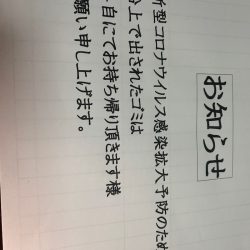 お知らせ
型コロナウイルス感染拡大予防のため
上で出されたゴミは
自にてお持ち帰り頂きます様
願い申し上げます。